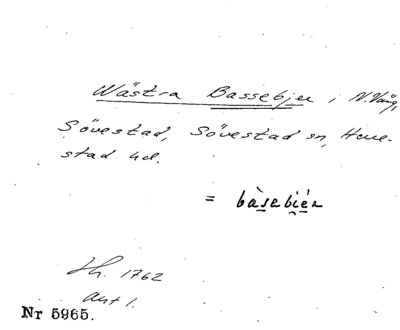 Wästra Bassebjer i N. Vång,
Sövestad, Sövestad sn, Herre-
stad hd.
= bàsebiér
Lh. 1762
akt 1.
Nr 5965.